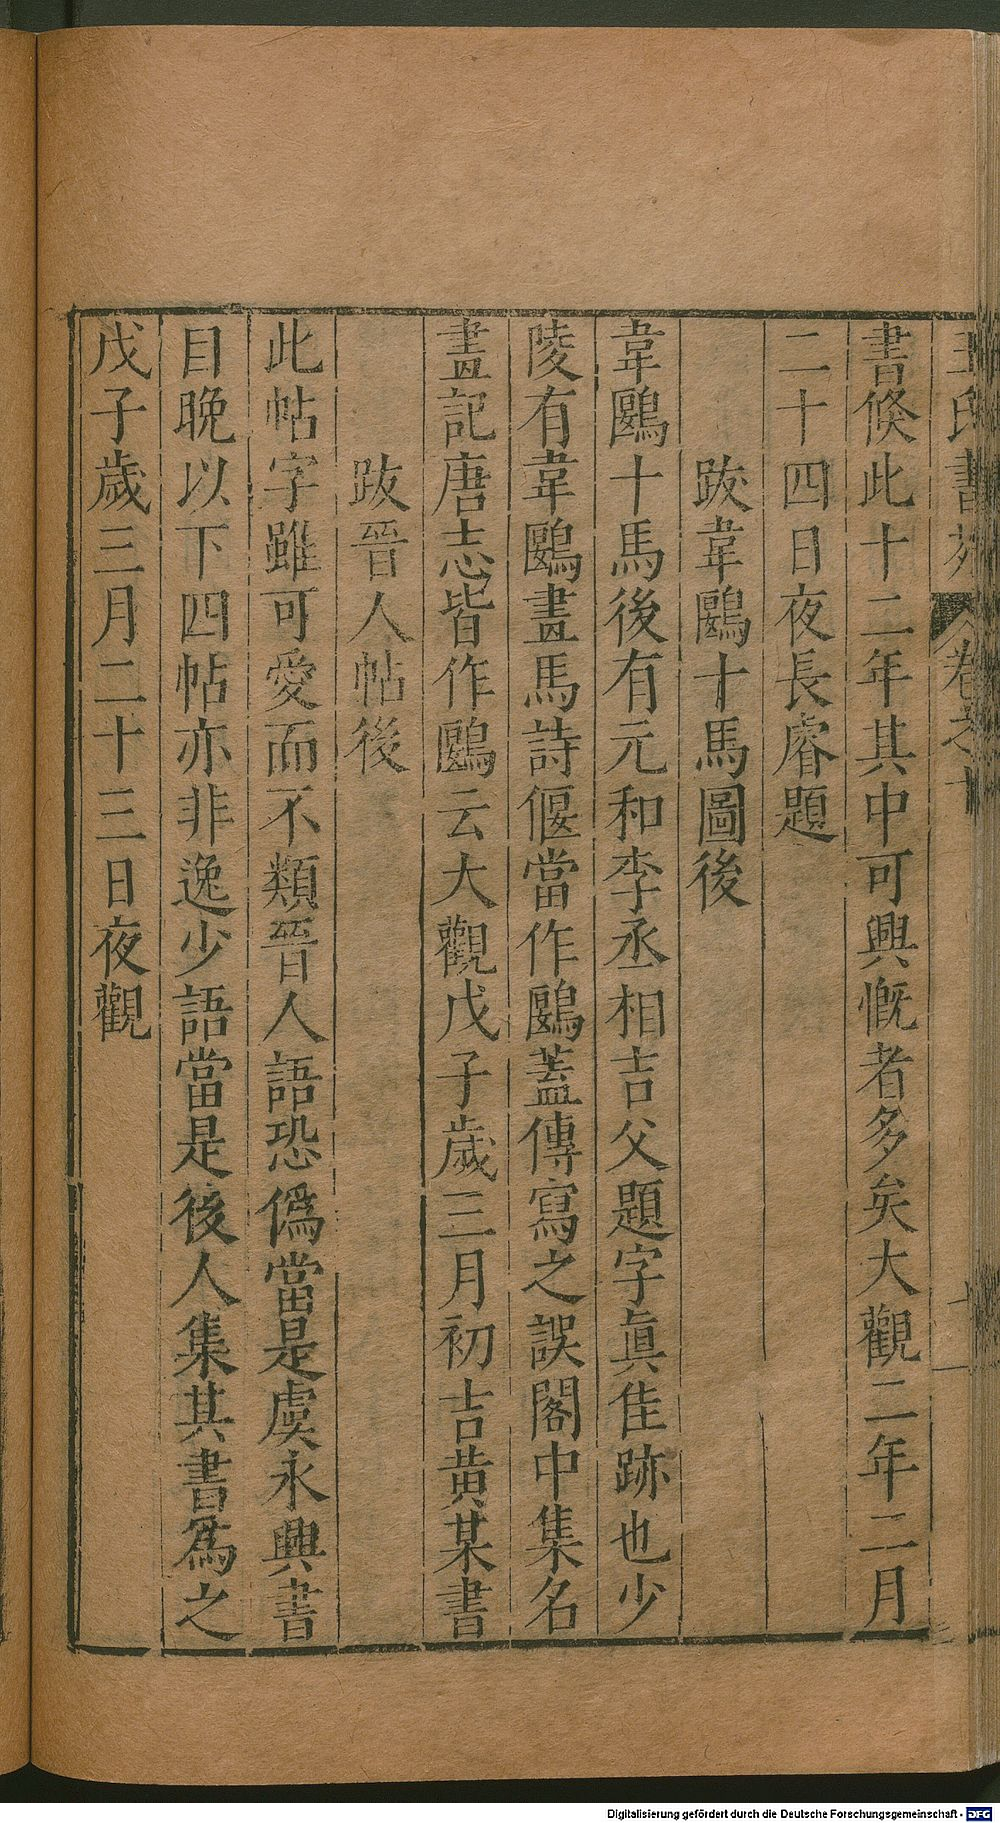 王氏書苑 卷之十
書倐此十二年其中可興慨者多矣大觀二年二月
二十四日夜長睿題
跋韋鷗十馬圖後
韋鷗十馬後有元和李丞相吉父題字眞佳跡也少
陵有韋鷗畫馬詩偃當作鷗蓋傳寫之誤閣中集名
畫記唐志皆作鷗云大觀戊子歲三月初吉黄某書
跋晉人帖後
此帖字雖可愛而不類晉人語恐僞當是虞永興書
目晩以下四帖亦非逸少語當是後人集其書爲之
戊子歲三月二十三日夜觀
Digitalisierung gefördert durch die Deutsche Forschungsgemeinschaft - DFG